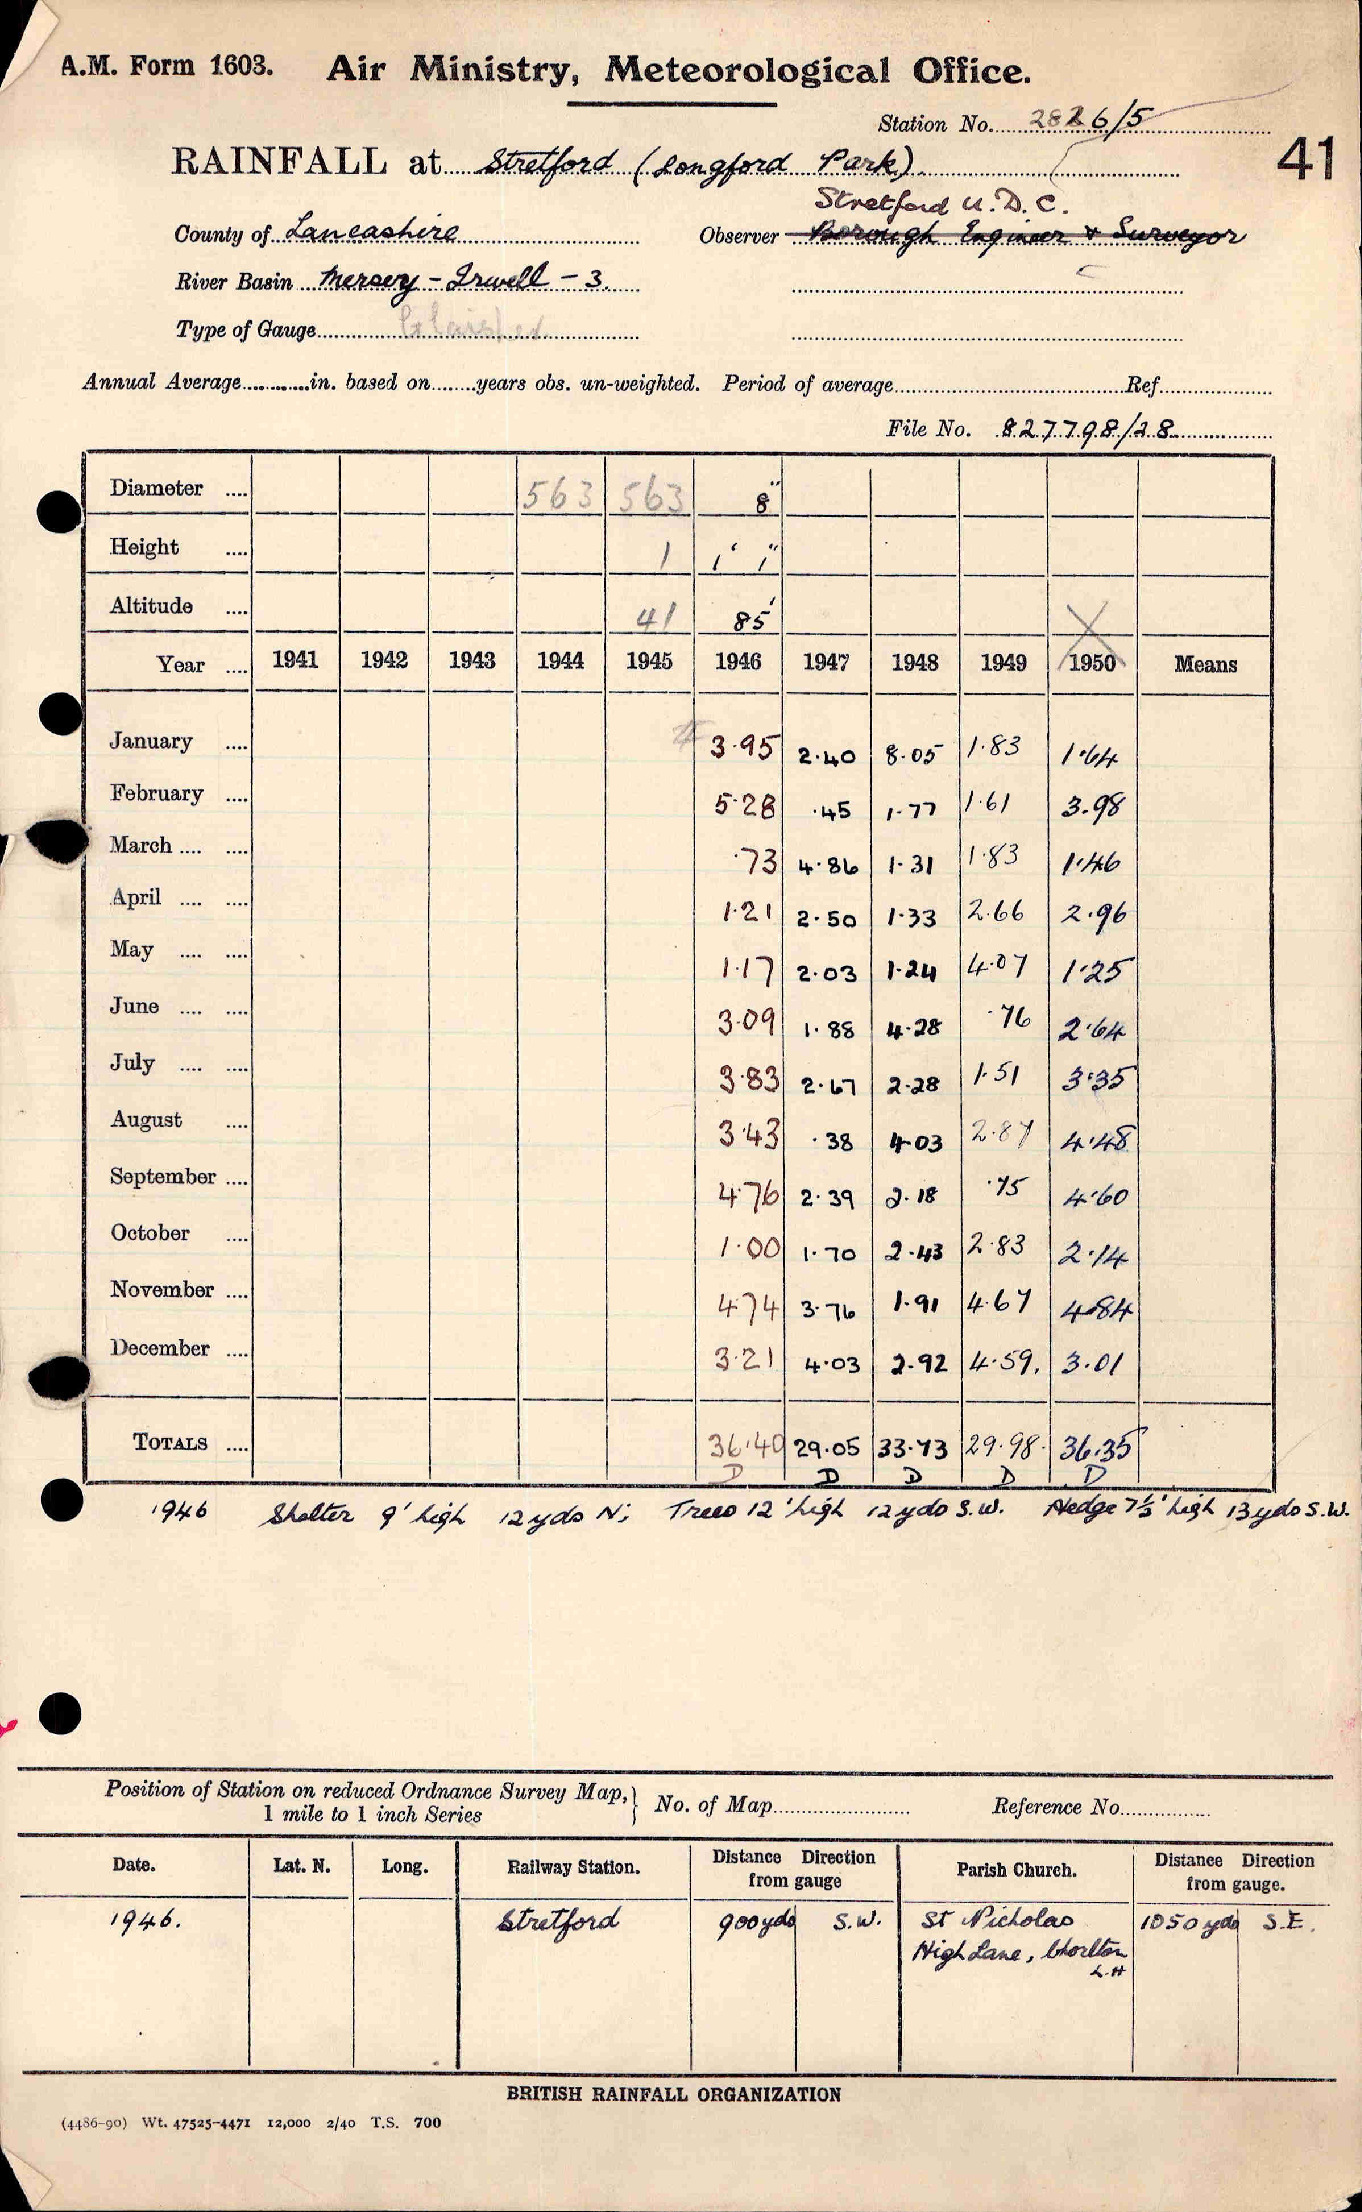 A.M. Form 1603. Air Ministry, Meteorological Office.
Station No. 2826/5
41
RAINFALL at Stretford (Longford Park)
Stretford U.D.C.
County of Lancashire Observer Borough Engineer & Surveyor
River Basin Mersey - Irwell - 3.
Type of Gauge Glaisher
Annual Average in. based on years obs. un-weighted. Period of average Ref.
File No. 827798/28
Diameter 563 563 8"
Height 1 1' 1"
Altitude 41 85'
Year 1941 1942 1943 1944 1945 1946 1947 1948 1949 1950 Means
January 3.95 2.40 8.05 1.83 1.64
February 5.28 .45 1.77 1.61 3.98
March .73 4.86 1.31 1.83 1.46
April 1.21 2.50 1.33 2.66 2.96
May 1.17 2.03 1.24 4.07 1.25
June 3.09 1.88 4.28 .76 2.64
July 3.83 2.67 2.28 1.51 3.35
August 3.43 .38 4.03 2.87 4.48
September 4.76 2.39 2.18 .75 4.60
October 1.00 1.70 2.43 2.83 2.14
November 4.74 3.76 1.91 4.67 4.84
December 3.21 4.03 2.92 4.59. 3.01
TOTALS 36.40 29.05 33.73 29.98. 36.35
D D D D D
1946 Shelter 9' high 12 yds N; Trees 12' high 12 yds S.W. Hedge 7½' high 13 yds S.W.
Position of Station on reduced Ordnance Survey Map, No. of Map Reference No.
1 mile to 1 inch Series
Date. Lat. N. Long. Railway Station. Distance Direction from gauge Parish Church. Distance Direction from gauge.
1946. Stretford 900 yds S.W. St Nicholas 1050 yds S.E.
High Lane, Chorlton
L-H
BRITISH RAINFALL ORGANIZATION
(4486-90) Wt. 47525-4471 12,000 2/40 T.S. 700